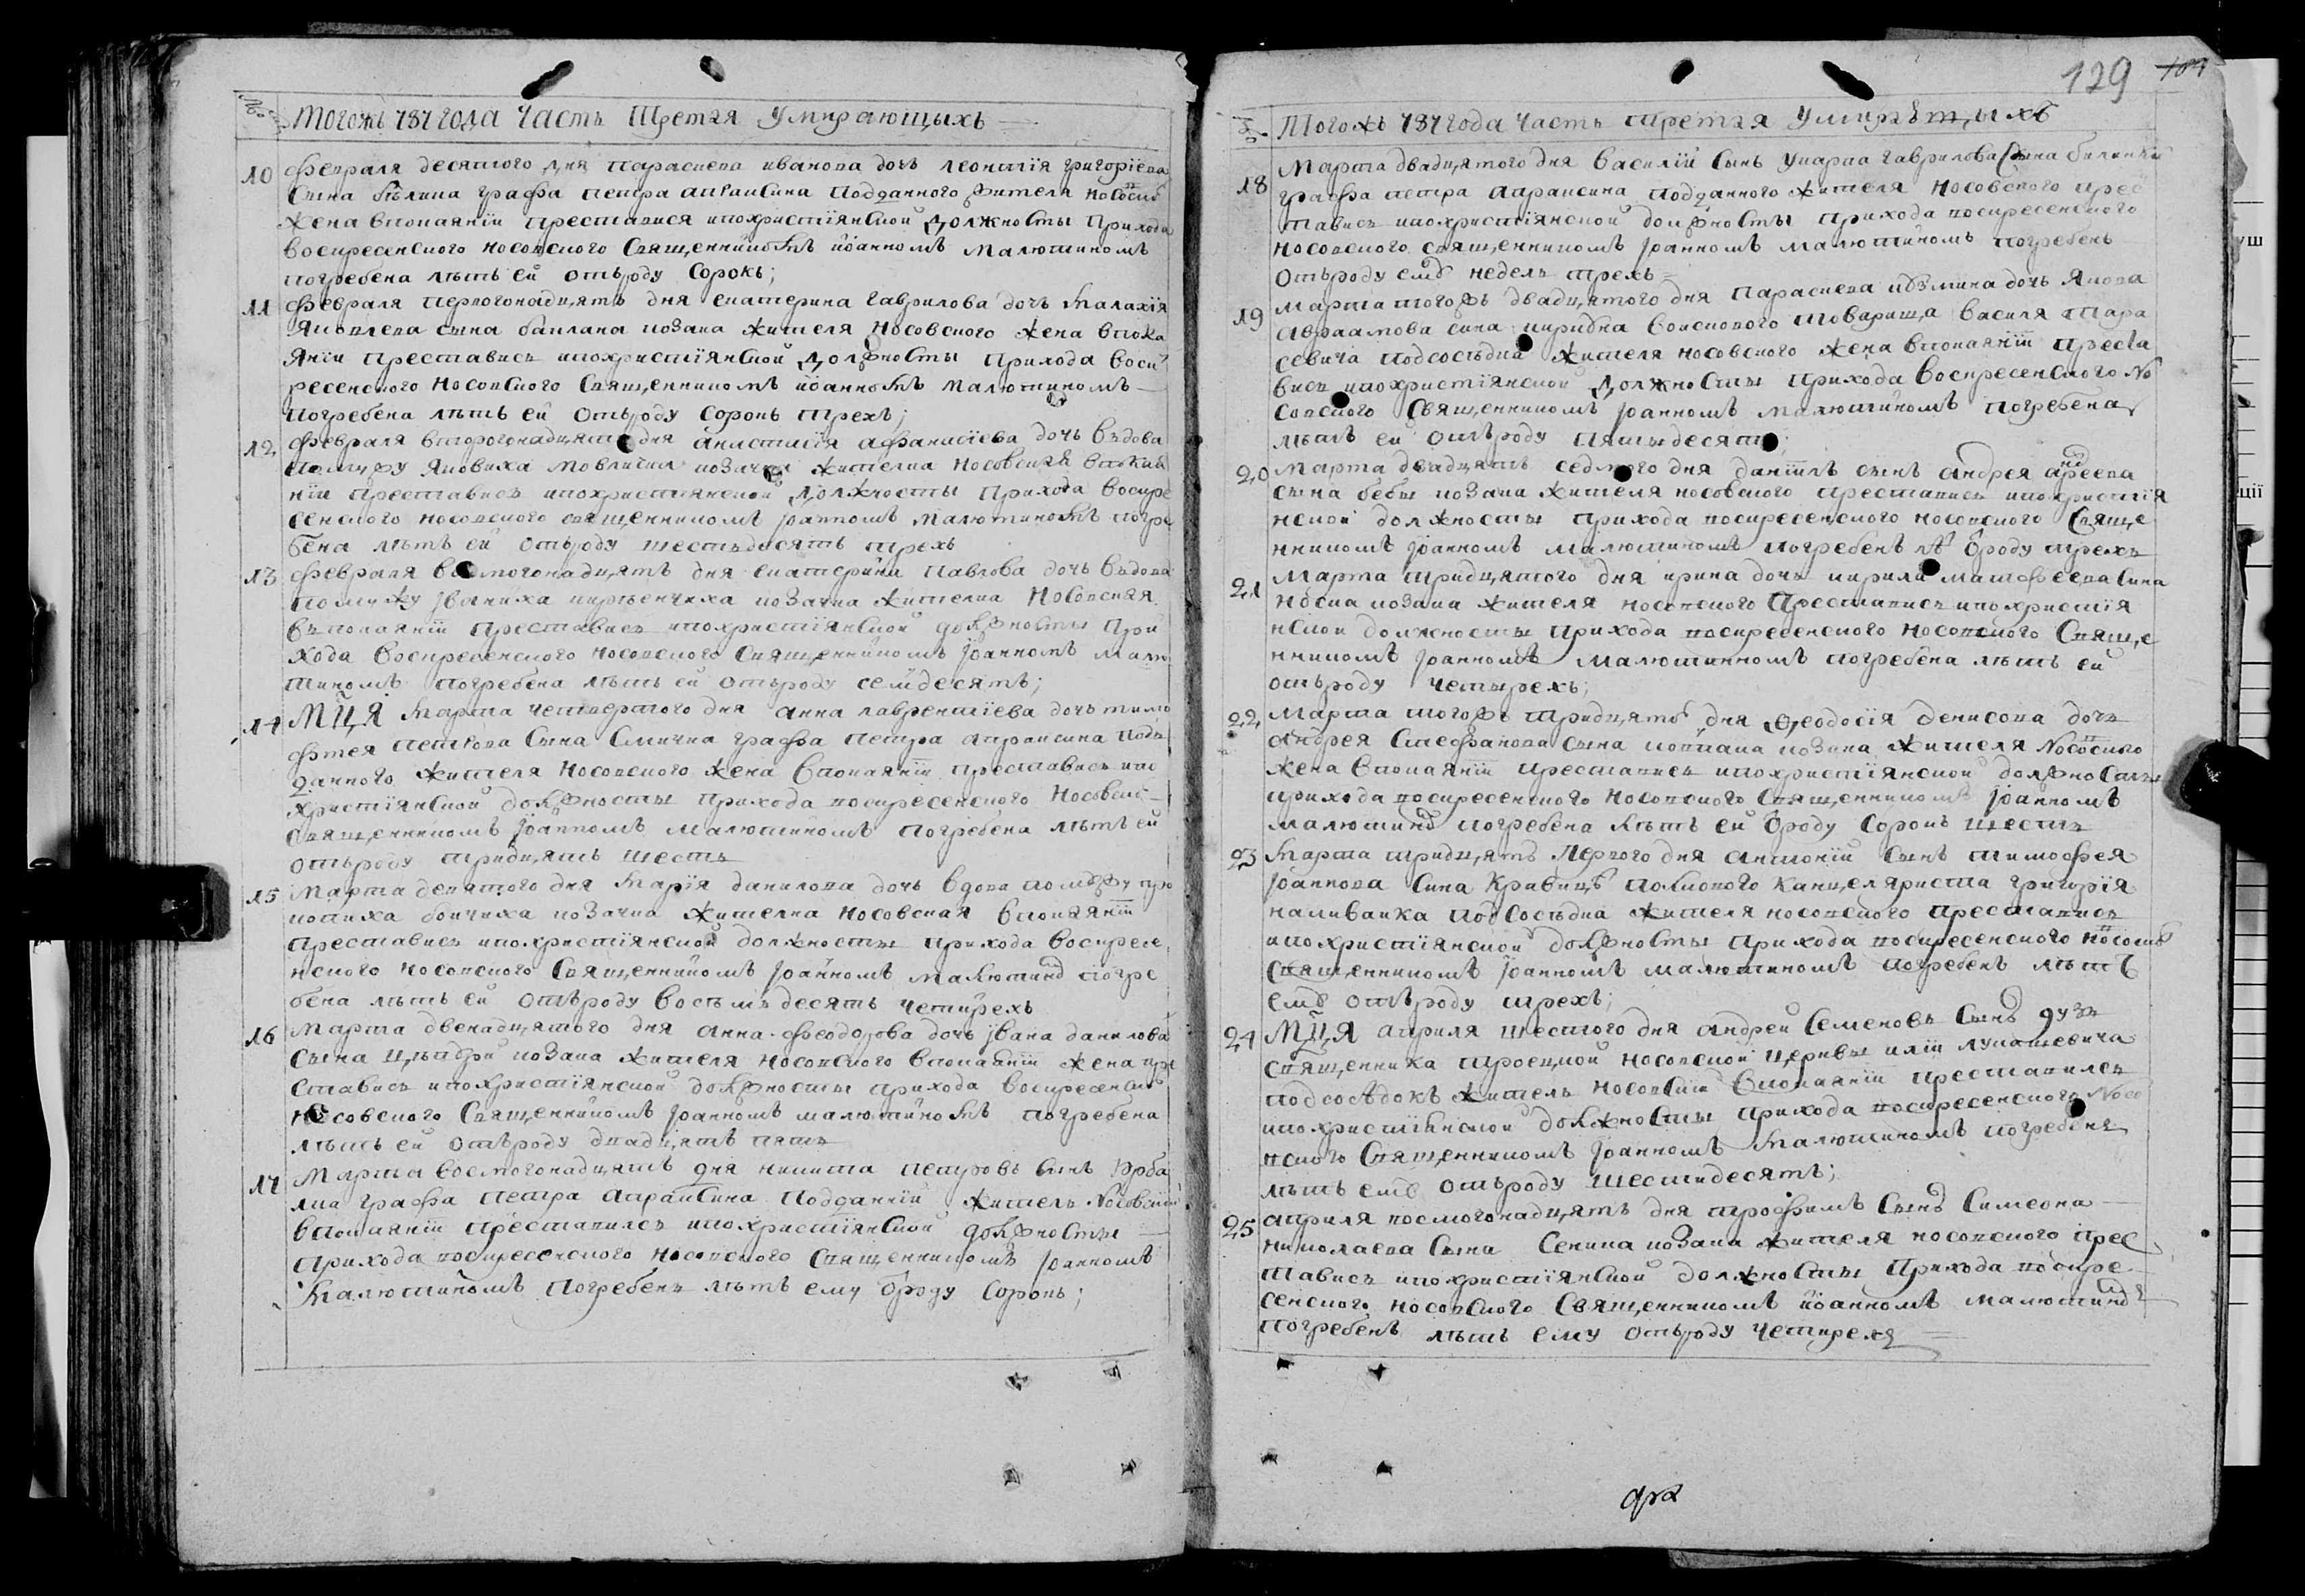 Тогожъ 787 года Часть Третяя Умирающыхъ
10 Февраля десятого дня Параскева Иванова дочь Леонтія Григоріева
Сына Бѣлика Графа Петра Апраксина Подданного Жителя Носовск
Жена впокаяніи Преставися ипохристіянской Должносты Прихода
Воскресенского Носовского Священникомъ Іоанномъ Малютиномъ
погребена лѣтъ ей отъроду Сорокъ;
11 Февраля Первогонадцять дня Екатерина Гаврилова дочь Малахія
Яковлева сына козака Жителя Носовского Жена впока
яніи Преставись ипохристіянской Должносты Прихода Воск
ресенского Носовского Священникомъ Іоанномъ Малютиномъ
Погребена лѣтъ ей Отъроду Сорокъ трехъ;
12 Февраля второгонадцять дня Анастасія Афанасіева дочь Въдова
помужу Яковиха козачка Жителка Носовская впокая
ніи преставись ипохристіянской Должносты Прихода Воскре
сенского Носовского священникомъ Іоанномъ Малютиномъ погре
бена лѣтъ ей Отъроду шестьдесятъ трехъ
13 Февраля восмогонадцять дня Екатерина Павлова дочь Въдова
помужу Іваниха козачка Жителка Носовская
въпокаяніи Преставись ипохристіянской должносты При
хода Воскресенского Носовского Священникомъ Іоанномъ Малю
тиномъ погребена лѣтъ ей отъроду семдесятъ;
14 Мця Марта четвертого дня Анна Лаврентіева дочь тимо
фтея Петрова Сына Смичка Графа Петра Апраксина Подъ
данного Жителя Носовского Жена впокаяніи преставись ипо
христіянской должносты Прихода воскресенского Носовск
Священникомъ Іоанномъ Малютиномъ Погребена лѣтъ ей
отъроду тридцять шесть
15 Марта девятого дня Марія Данилова дочь вдова помужу про
копиха козачка Жителка Носовская впокаяніи
преставись ипохристіянской должносты прихода Воскресе
нского Носовского Священникомъ Іоанномъ Малютино погре
бена лѣтъ ей Отъроду Восѣмъдесять четирехъ
16 Марта двенадцятого дня Анна Феодорова дочь Івана Данилова
Сына козака Жителя Носовского впокаяніи Жена пре
ставись ипохристіянской должносты прихода Воскресенск
Носовского Священникомъ Іоанномъ Малютиномъ погребена
лѣтъ ей отъроду двадцять пять
17 Марта Восмогонадцять дня Никита Петровъ Сынъ
Графа Петра Апраксина Подданній Житель Носовскій
впокаяніи преставился ипохристіянской должносты
Прихода воскресенского Носовского Священникомъ Іоанномъ
Малютиномъ Погребенъ лѣтъ ему ѿроду Сорокъ;
129
Тогожъ 787 года Часть третяя Умиръ
18 Марта двадцятого дня Василій Сынъ Уварва Гаврилова Сына
графа петра Апраксина Подданного Жителя Носовского прес
тавись ипохристіянской должносты прихода воскресенского
Носовского священникомъ Іоанномъ Малютиномъ погребенъ
Отъроду ему недель трехъ
19 Марта тогожъ двадцятого дня Параскева Козмина дочь Якова
Авраамова сина воискового товарища Василя Тара
севича подсосѣдка Жителя носовского жена впокаяніи преста
вись ипохристіянской Должносты Прихода Воскресенского Но
совского Священникомъ Іоанномъ Малютиномъ погребена
лѣтъ ей отъроду пятьдесятъ;
20 Марта двадцять седмого дня Даніилъ сынъ Андрея Андреева
сына Бебы козака Жителя носовского преставись ипохристія
нской должносты прихода воскресенского носовского Свяще
нникомъ Іоанномъ Малютиномъ погребенъ лѣ ѿроду трехъ
21 Марта тридцятого дня Ирина дочь Кирила Матфеева Сина
Носка козака Жителя Носовского Преставись ипохристія
нской должносты Прихода воскресенского Носовского Свяще
нникомъ Іоанномъ Малютинномъ погребена лѣтъ ей
отъроду четырехъ;
22 Марта тогожъ тридцять дня Феодосія Денисова дочь
Андрея Стефанова сына козака Жителя Носовского
Жена впокаяніи преставись ипохристіянской должносты
прихода воскресенского Носовского Священникомъ Іоанномъ
Малютино погребена лѣтъ ей ѿроду Сорокъ шесть
23 Марта тридцять Первого дня Антоній Сынъ Тимофея
Іоаннова Сина Кравицъ полкового Канцеляриста Григорія
наливаика Подсосѣдка Жителя носовского преставись
ипохристіянской должносты Прихода воскресенского Носовск
Священникомъ Іоанномъ Малютиномъ погребенъ лѣтъ
ему отъроду трехъ;
24 Мця Априля шестого дня Андрей Семеновъ Сынъ
священника троецкой носовской церквы иліи лукашевича
подсосѣдокъ Житель Носовскій впокаяніи преставился
ипохристіянской должносты прихода воскресенского Носо
вского Священникомъ Іоанномъ Малютиномъ погребенъ
лѣтъ ему отъроду шестидесятъ;
25 Априля восмогонадцять дня трофимъ Сынъ Симеона
николаева Сына Сенина козака жителя носовского прес
тавись ипохристіянской должносты Прихода воскре
сенского носовского Священникомъ Іоанномъ Малютино
погребенъ лѣтъ ему отъроду четирехъ